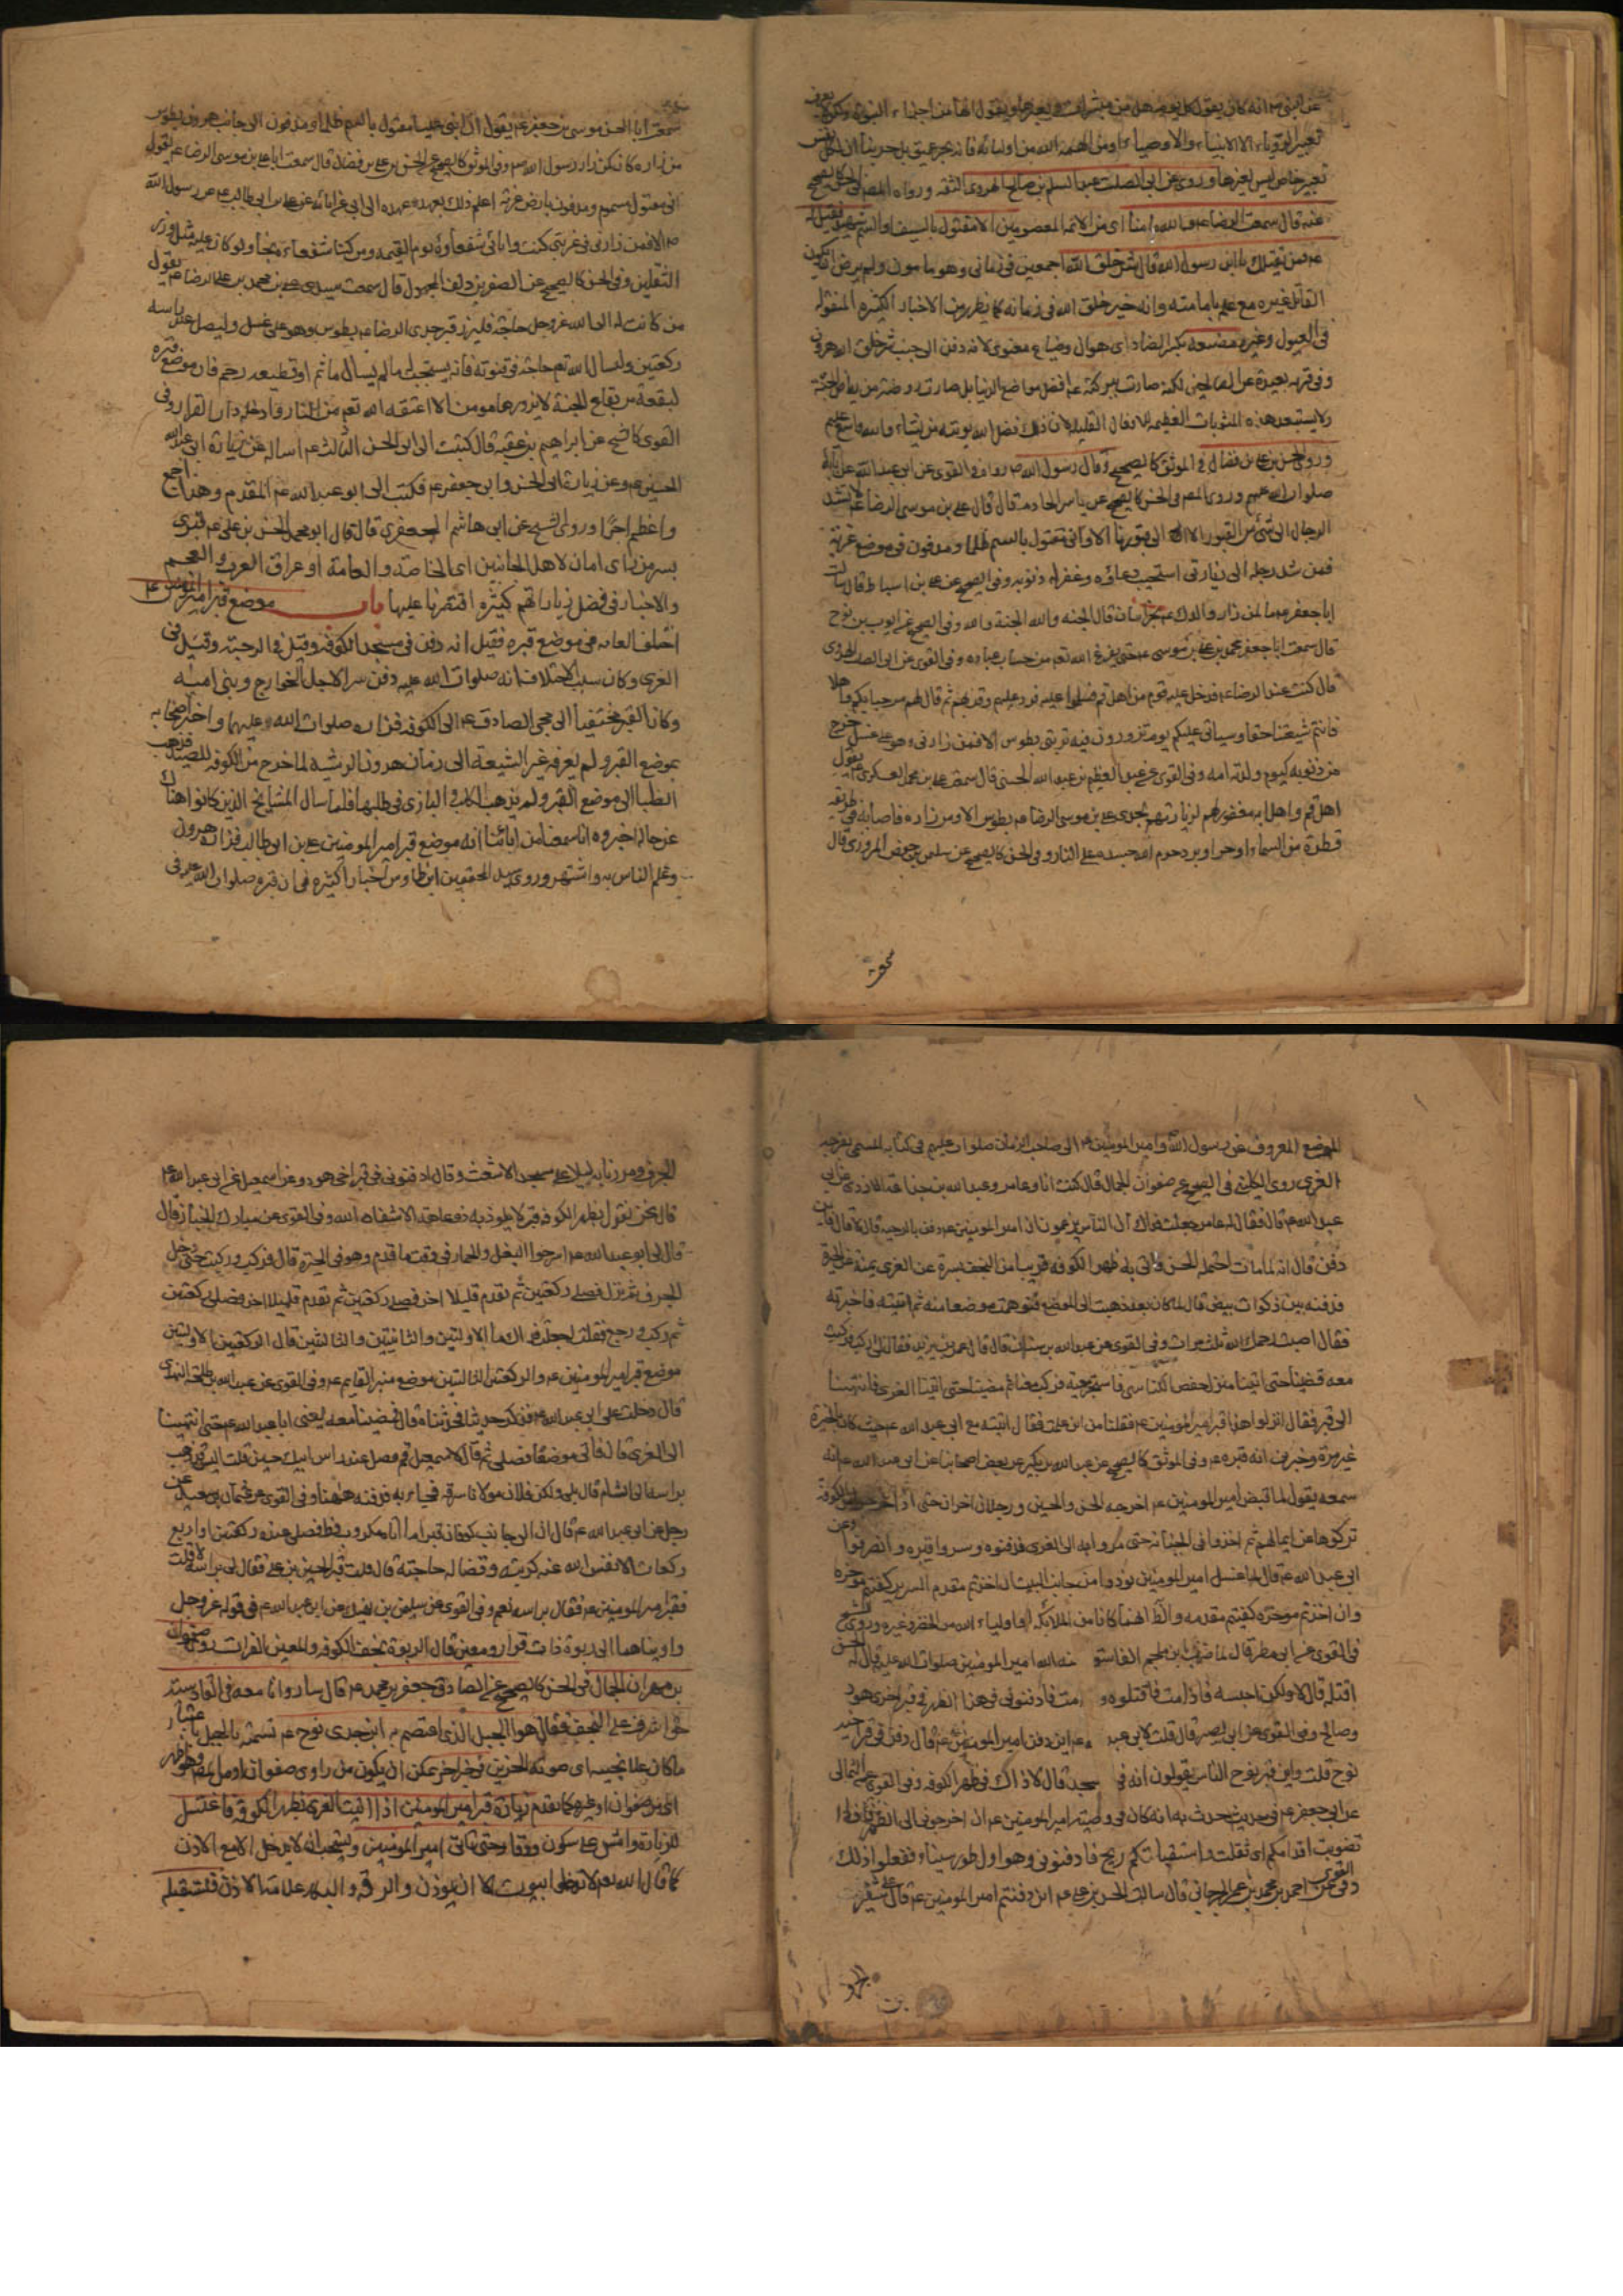 عن النبي ص انه كان يقول كل يوم هل من مبشرات ويعبرها ويقول انها من اجزاء النبوة
تعبير الرؤيا الا الانبياء والاوصياء او من الهمه الله من اوليائه فانه بحر عميق بل
تعبير خاص ليس لغيرها وروى عن ابي الصلت عبد السلام بن صالح الهروى الثقه ورواه المص في الحسن كالصحيح
عنه قال سمعت الرضا ع يقول والله ما منا اى من الائمة المعصومين الا مقتول بالسيف او السم شهيد فقيل له
فمن يقتلك يا ابن رسول الله قال شر خلق الله اجمعين في زماني وهو مامون ولم يرض ان يكون
القاتل غيره مع علمه بامامته وانه خير خلق الله في زمانه كما يظهر من الاخبار الكثيرة المنقولة
في العيون وغيره مضيعة بكسر الضاد اى هوان وضياع معنوى لانه دفن الى جنب شر خلق الله هرون
وفي قرية بعيدة عن المحبين لكنه صارت ببركته ع افضل مواضع الدنيا بل صارت روضة من رياض الجنة
ولا يستبعد هذه المثوبات العظيمة للافعال القليلة لان ذلك فضل الله يؤتيه من يشاء والله واسع عليم
وروى الحسن بن علي بن فضال في الموثق كالصحيح وقال رسول الله ص رواه في القوى عن ابي عبد الله عن آبائه
صلوات الله عليهم وروى المص في الحسن كالصحيح عن ياسر الخادم قال قال علي بن موسى الرضا ع لا تشد
الرحال الى شئ من القبور الا الى قبورنا الا واني مقتول بالسم ظلما ومدفون في موضع غربة
فمن شد رحله الى زيارتي استجيب دعاؤه وغفر له ذنوبه وفي الصحيح عن علي بن اسباط قال سالت
ابا جعفر ع ما لمن زار والدك ع بخراسان قال الجنة والله الجنة والله وفي الصحيح عن ايوب بن نوح
قال سمعت ابا جعفر محمد بن علي بن موسى ع حتى يفرغ الله تعم من حساب عباده وفي القوى عن ابي الصلت الهروى
قال كنت عند الرضا ع فدخل عليه قوم من اهل قم فسلموا عليه فرد عليهم وقربهم ثم قال لهم مرحبا بكم واهلا
فانتم شيعتنا حقا وسياتي عليكم يوم تزورون فيه تربتي بطوس الا فمن زارني وهو على غسل خرج
من ذنوبه كيوم ولدته امه وفي القوى عن عبد العظيم بن عبد الله الحسني قال سمعت علي بن محمد العسكرى ع يقول
اهل قم واهل ابه مغفور لهم لزيارتهم لجدى علي بن موسى الرضا ع بطوس الا ومن زاره فاصابه في طريقه
قطرة من السماء او حر او برد حرم الله جسده على النار وفي الحسن كالصحيح عن سليمان بن حفص المروزى قال
سمعت
سمعت ابا الحسن موسى بن جعفر ع يقول ان ابني عليا مقتول بالسم ظلما ومدفون الى جانب هرون بطوس
من زاره كان كمن زار رسول الله ص وفي الموثق كالصحيح عن الحسن بن علي بن فضال قال سمعت ابا علي بن موسى الرضا ع يقول
اني مقتول مسموم ومدفون بارض غربة اعلم ذلك بعهد عهده الى ابي عن ابائه عن علي بن ابي طالب ع عن رسول الله
ص الا فمن زارني في غربتي كنت وابائي شفعاؤه يوم القيمة ومن كنا شفعاءه نجا ولو كان عليه مثل وزر
الثقلين وفي الحسن كالصحيح عن الصقر بن دلف المجهول قال سمعت سيدى علي بن محمد بن علي الرضا ع يقول
من كانت له الى الله عز وجل حاجة فليزر قبر جدى الرضا ع بطوس وهو على غسل وليصل عند راسه
ركعتين وليسال الله تعم حاجته في قنوته فانه يستجيب له ما لم يسال ماثم او قطيعة رحم فان موضع قبره
لبقعة من بقاع الجنة لا يزورها مومن الا اعتقه الله تعم من النار وادخله دار القرار وفي
القوى كالصحيح عن ابراهيم بن عقبة قال كتبت الى ابي الحسن الثالث ع اساله عن زيارة ابي عبد الله
الحسين ع وعن زيارة ابي الحسن وابي جعفر ع فكتب الى ابو عبد الله ع المقدم وهذان اجمع
واعظم اجرا وروى الشيخ عن ابي هاشم الجعفرى قال قال ابو محمد الحسن بن علي ع قبرى
بسر من راى امان لاهل الجانبين اى الخاصة والعامة او عراق العرب والعجم
والاخبار في فضل زياراتهم كثيرة اقتصرنا عليها باب موضع قبر امير المؤمنين ع
اختلف العامة في موضع قبره فقيل انه دفن في مسجد الكوفة وقيل في الرحبة وقيل في
الغرى وكان سبب الاختلاف انه صلوات الله عليه دفن سرا لاجل الخوارج وبني امية
وكان القبر مختفيا الى مجى الصادق ع الى الكوفة فزاره صلوات الله عليهما واخبر اصحابه
بموضع القبر ولم يعرفه غير الشيعة الى زمان هرون الرشيد لما خرج من الكوفة للصيد فذهب
الظبا الى موضع القبر ولم يذهب الكلب والبازى في طلبها فلما سال المشايخ الذين كانوا هناك
عن حاله اخبروه انا سمعنا من ابائنا انه موضع قبر امير المومنين علي بن ابي طالب فزاره هرون
وعلم الناس به واشتهر وروى سيد المحققين ابن طاوس اخبارا كثيرة في ان قبره صلوات الله عليه في
الموضع المعروف عن رسول الله وامير المومنين ع الى صاحب الزمان صلوات عليهم في كتابه المسمى بفرحة
الغرى روى الكليني في الصحيح عن صفوان الجمال قال كنت انا وعامر وعبد الله بن جذاعة الازدى عن ابي
عبد الله ع قال فقال له عامر جعلت فداك ان الناس يزعمون ان امير المومنين ع دفن بالرحبة قال لا قال فاين
دفن قال انه لما مات احتمله الحسن فاتى به ظهر الكوفة قريبا من النجف يسرة عن الغرى يمنة عن الحيرة
فدفنه بين ذكوات بيض قال فلما كان بعد ذهبت الى الموضع فتوهمت موضعا منه ثم اتيته فاخبرته
فقال اصبت رحمك الله ثلث مرات وفي القوى عن عبد الله بن سنان قال قال عمر بن يزيد فقال لي اركب فركبت
معه فمضينا حتى اتينا منزل حفص الكناسي فاستخرجته فركب معنا ثم مضينا حتى اتينا الغرى فانتهينا
الى قبر فقال انزلوا هذا قبر امير المومنين ع فقلنا من اين علمت فقال اتيته مع ابي عبد الله ع حيث كان بالحيرة
غير مرة وخبرني انه قبره ع وفي الموثق كالصحيح عن عبد الله بن بكير عن بعض اصحابنا عن ابي عبد الله ع انه
سمعه يقول لما قبض امير المومنين ع اخرجه الحسن والحسين ورجلان اخران حتى اذا خرجوا من الكوفة
تركوها عن ايمانهم ثم اخذوا في الجبانة حتى مروا به الى الغرى فدفنوه وسووا قبره وانصرفوا وعن
ابي عبد الله ع قال لما غسل امير المومنين نودوا من جانب البيت ان اخذتم مقدم السرير كفيتم مؤخره
وان اخذتم موخره كفيتم مقدمه
في القوى عن ابي مطر قال لما ضرب ابن ملجم الفاسق لعنه الله امير المومنين صلوات الله عليه قال له الحسن
اقتله قال لا ولكن احبسه فاذا مت فاقتلوه و مت فادفنوني في هذا الظهر في قبر اخوى هود
وصالح وفي القوى عن ابي بصير قال قلت لابي عبد ع اين دفن امير المومنين ع قال دفن في قبر ابيه
نوح قلت واين قبر نوح الناس يقولون انه في مسجد قال لا ذاك في ظهر الكوفة وفي القوى عن الثمالي
عن ابي جعفر ع في حديث حدث به انه كان في وصية امير المومنين ع ان اخرجوني الى الظهر فاذا
تصوبت اقدامكم اى ثقلت واستقبلتكم ريح فادفنوني وهو اول طور سيناء ففعلوا ذلك
وفي القوى عن احمد بن محمد بن عمر الجرجاني قال سالت الحسن بن علي ع اين دفنتم امير المومنين ع قال على شفير
الجرف ومررنا به ليلا على مسجد الاشعث وقال ادفنوني في قبر اخي هود وعن اسمعيل عن ابي عبد الله ع
قال نحن نقول بظهر الكوفة قبر لا يلوذ به ذو عاهة الا شفاه الله وفي القوى عن مبارك الخباز قال
قال لي ابو عبد الله ع اسرجوا البغل والحمار في وقت ما قدم وهو في الحيرة قال فركب وركبت حتى دخل
الجرف ثم نزل فصلى ركعتين ثم تقدم قليلا اخر فصلى ركعتين ثم تقدم قليلا اخر فصلى ركعتين
ثم ركب ورجع فقلت له جعلت فداك ما الاولتين والثانيتين والثالثتين قال الركعتين الاولتين
موضع قبر امير المومنين ع والركعتين الثالثتين موضع منبر القايم ع وفي القوى عن عبد الله بن طلحة النهدى
قال دخلت على ابي عبد الله ع فذكر حديثا فحدثناه قال فمضينا معه يعني ابا عبد الله ع حتى انتهينا
الى الغرى قال فاتى موضعا فصلى ثم قال لاسمعيل قم فصل عند راس ابيك حسين قلت اليس قد ذهب
براسه الى الشام قال بلى ولكن فلان مولانا سرقه فجاء به فدفنه ههنا وفي القوى عن عثمان بن سعيد عن
رجل عن ابي عبد الله ع قال ان الى جانب كوفان قبرا ما اتاه مكروب قط فصلى عنده ركعتين او اربع
ركعات الا نفس الله عنه كربته وقضى له حاجته قال قلت قبر الحسين بن علي فقال لي براسه لا قلت
فقبر امير المومنين ع فقال براسه نعم وفي القوى عن سليمان بن عن ابي عبد الله ع في قوله عز وجل
واويناهما الى ربوة ذات قرار ومعين قال الربوة نجف الكوفة والمعين الفرات روى صفوان
بن مهران الجمال في الحسن كالصحيح عن الصادق جعفر بن محمد ع قال سار وانا معه في القادسية
حتى اشرف على النجف فقال هو الجبل الذى اعتصم به ابن جدى نوح ع تسمية بالجبل باعتبار
الى من صفوان او غيره كما تقدم زيارة قبر امير المومنين اذا اتيت الغرى بظهر الكوفة فاغتسل
للزيارة وامش على سكون ووقار حتى تاتي امير المومنين ويستحب انه لا يدخل الا مع الاذن
كما قال الله تعم لا تدخلوا بيوت الا ان يؤذن والرقة والبكاء علامة الاذن